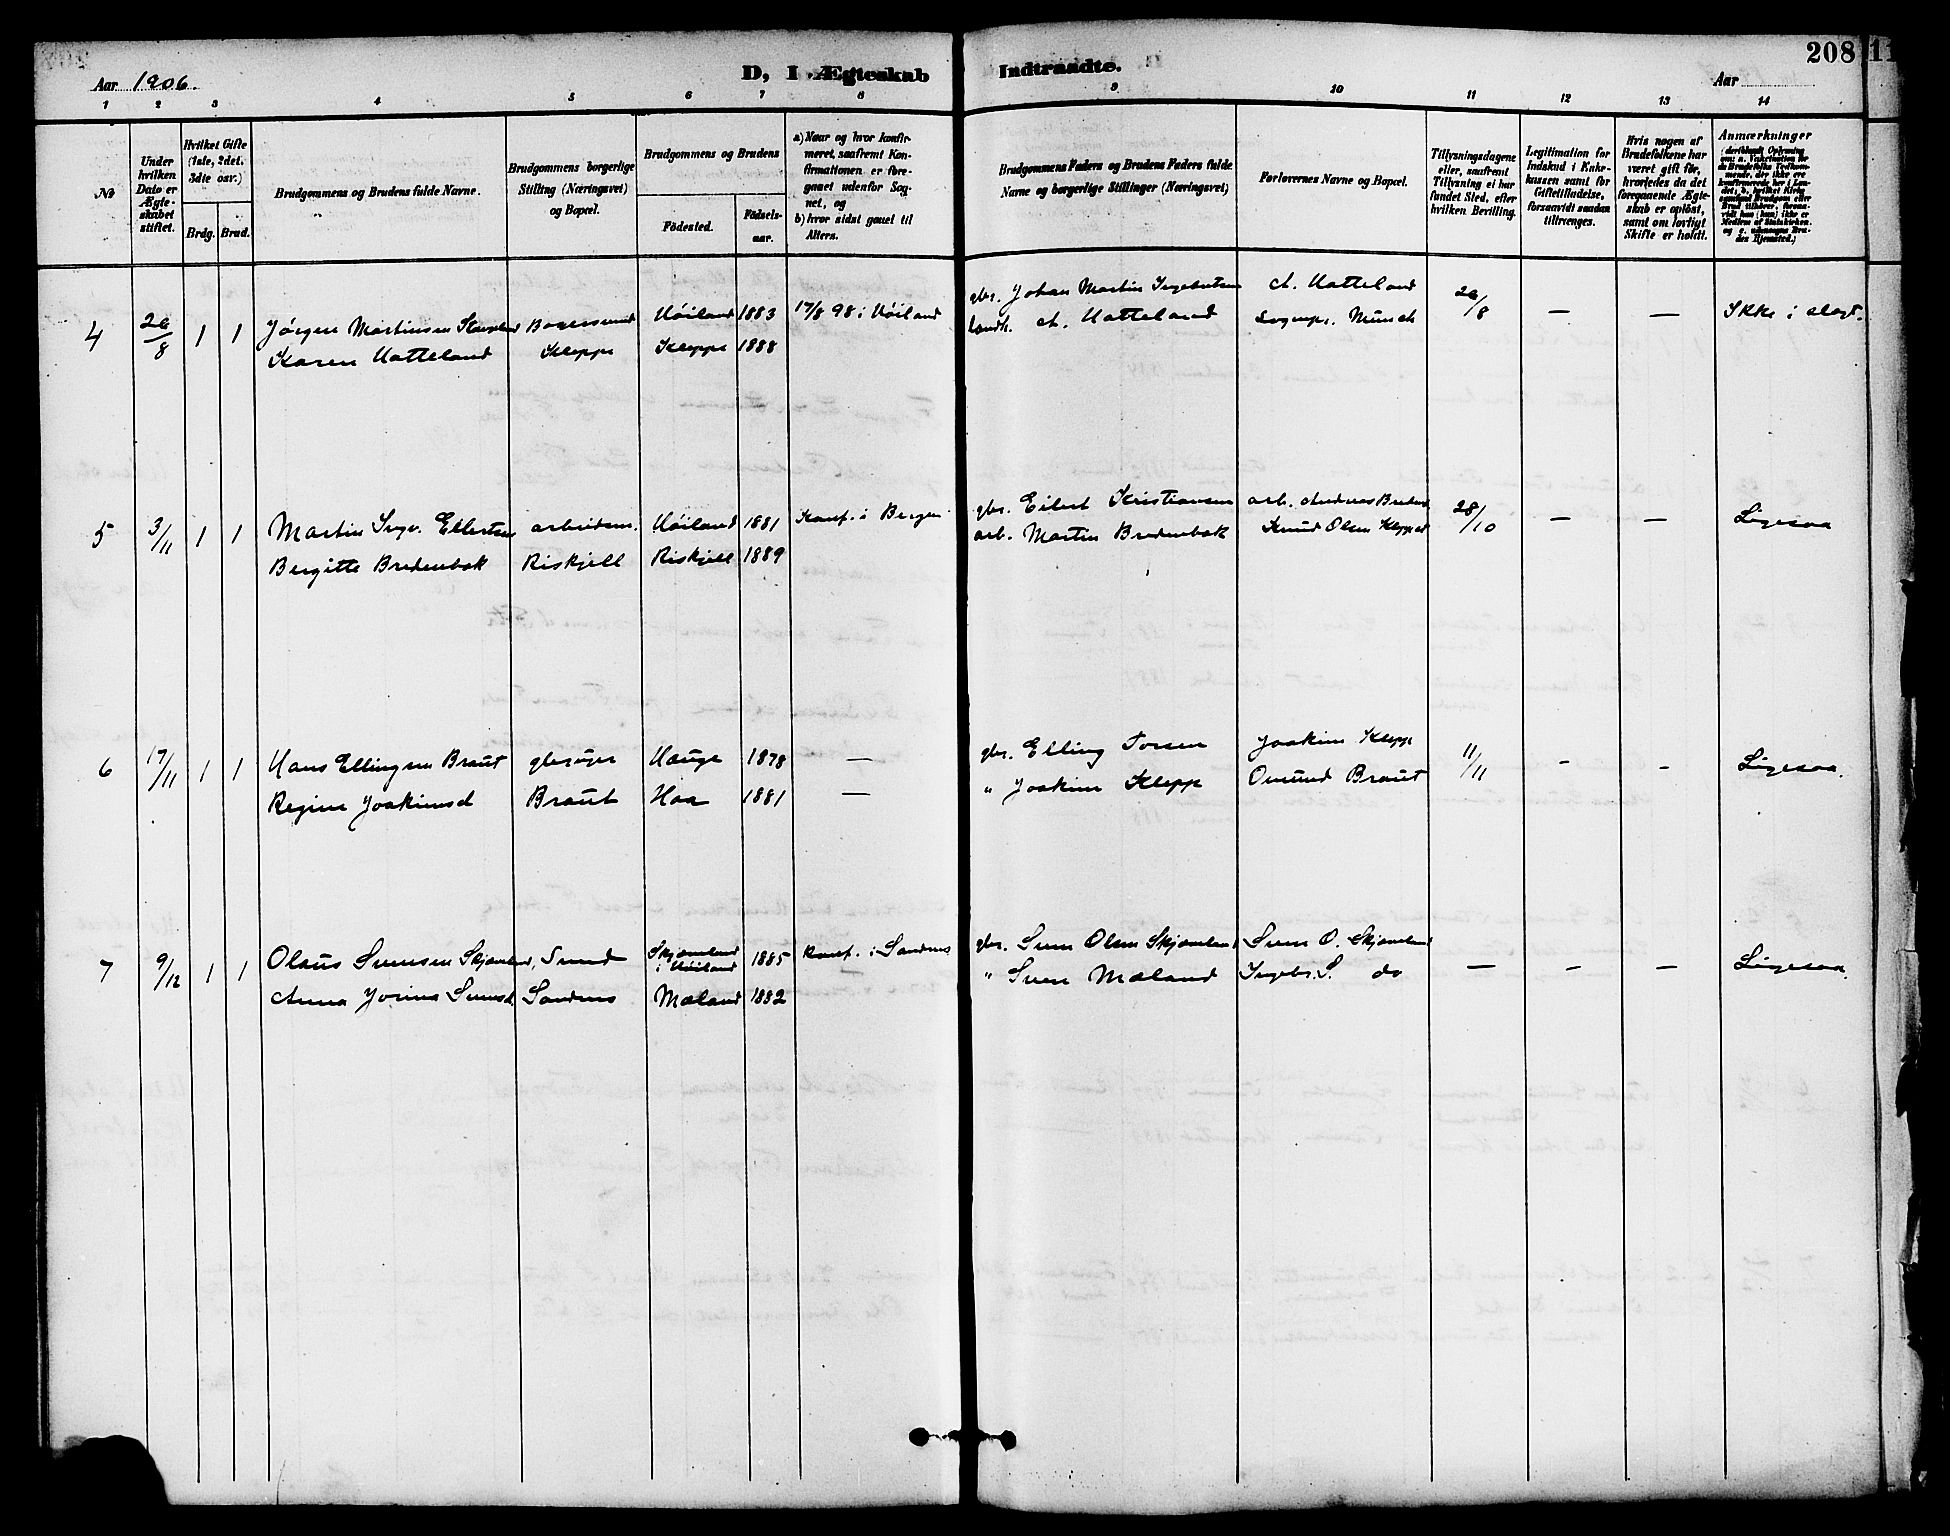 208
Aar 1906.
D, I Ægteskab Indtraadte.
Aar
1 2 3 4 5 6 7 8 9 10 11 12 13 14
№
Under hvilken Dato er Ægteskabet stiftet.
Hvilket Gifte (1ste, 2det. 3die osv.)
Brdg. Brud.
Brudgommens og Brudens fulde Navne.
Brudgommens borgerlige Stilling (Næringsvei) og Bopæl.
Brudgommens og Brudens
Födested.
Födselsaar.
a) Naar og hvor konfirmeret, saafremt Konfirmationen er foregaaet udenfor Sognet, og
b) hvor sidst gaaet til Alters.
Brudgommens Faders og Brudens Faders fulde Navne og borgerlige Stillinger (Næringsvei)
Forlovernes Navne og Bopæl.
Tillysningsdagene eller, saafremt Tillysning ei har fundet Sted, efter hvilken Bevilling.
Legitimation for Indskud i Enkekassen samt for Giftetilladelse, forsaavidt saadan tiltrænges.
Hvis nogen af Brudefolkene har været gift för, hvorledes da det foregaaende Ægteskab er oplöst, samt om lovligt Skifte er holdt.
Anmærkninger
4 26/8 1 1 Jörgen Martinsen Höiland 1883 17/8 98 i Höiland gbr. Johan Martin A. Hatteland 26/8 — — Ikke i slægt.
Karen Hatteland Kleppe Kleppe 1888 A. Hatteland Sognepr. Münch
5 3/11 1 1 Martin Ingv. Ellertsen arbeidsm. Höiland 1881 Konf. i Bergen gbr. Eilert Kristiansen arb. Andreas 28/10 — — Ligesaa
Bergitte Bredenbek Riskjell Riskjell 1889 arb. Martin Bredenbek Knud Olsen
6 17/11 1 1 Hans Ellingsen Braut Hauge 1878 — gbr. Elling Torsen Joakim Klepp 11/11 - - Ligesaa.
Regine Joakimsd Braut Haa 1881 — " Joakim Klepp Omund Braut
7 9/12 1 1 Olaus Svensen Skjæveland, Sund Skjæveland i Höiland 1885 Konf. i Sandnes gbr. Sven Olsen Skjæveland Sven O. Skjæveland — - - Ligesaa.
Anna Jorina Svensd. Sandnes Mæland 1882 " Sven Mæland Ingebr. S. do